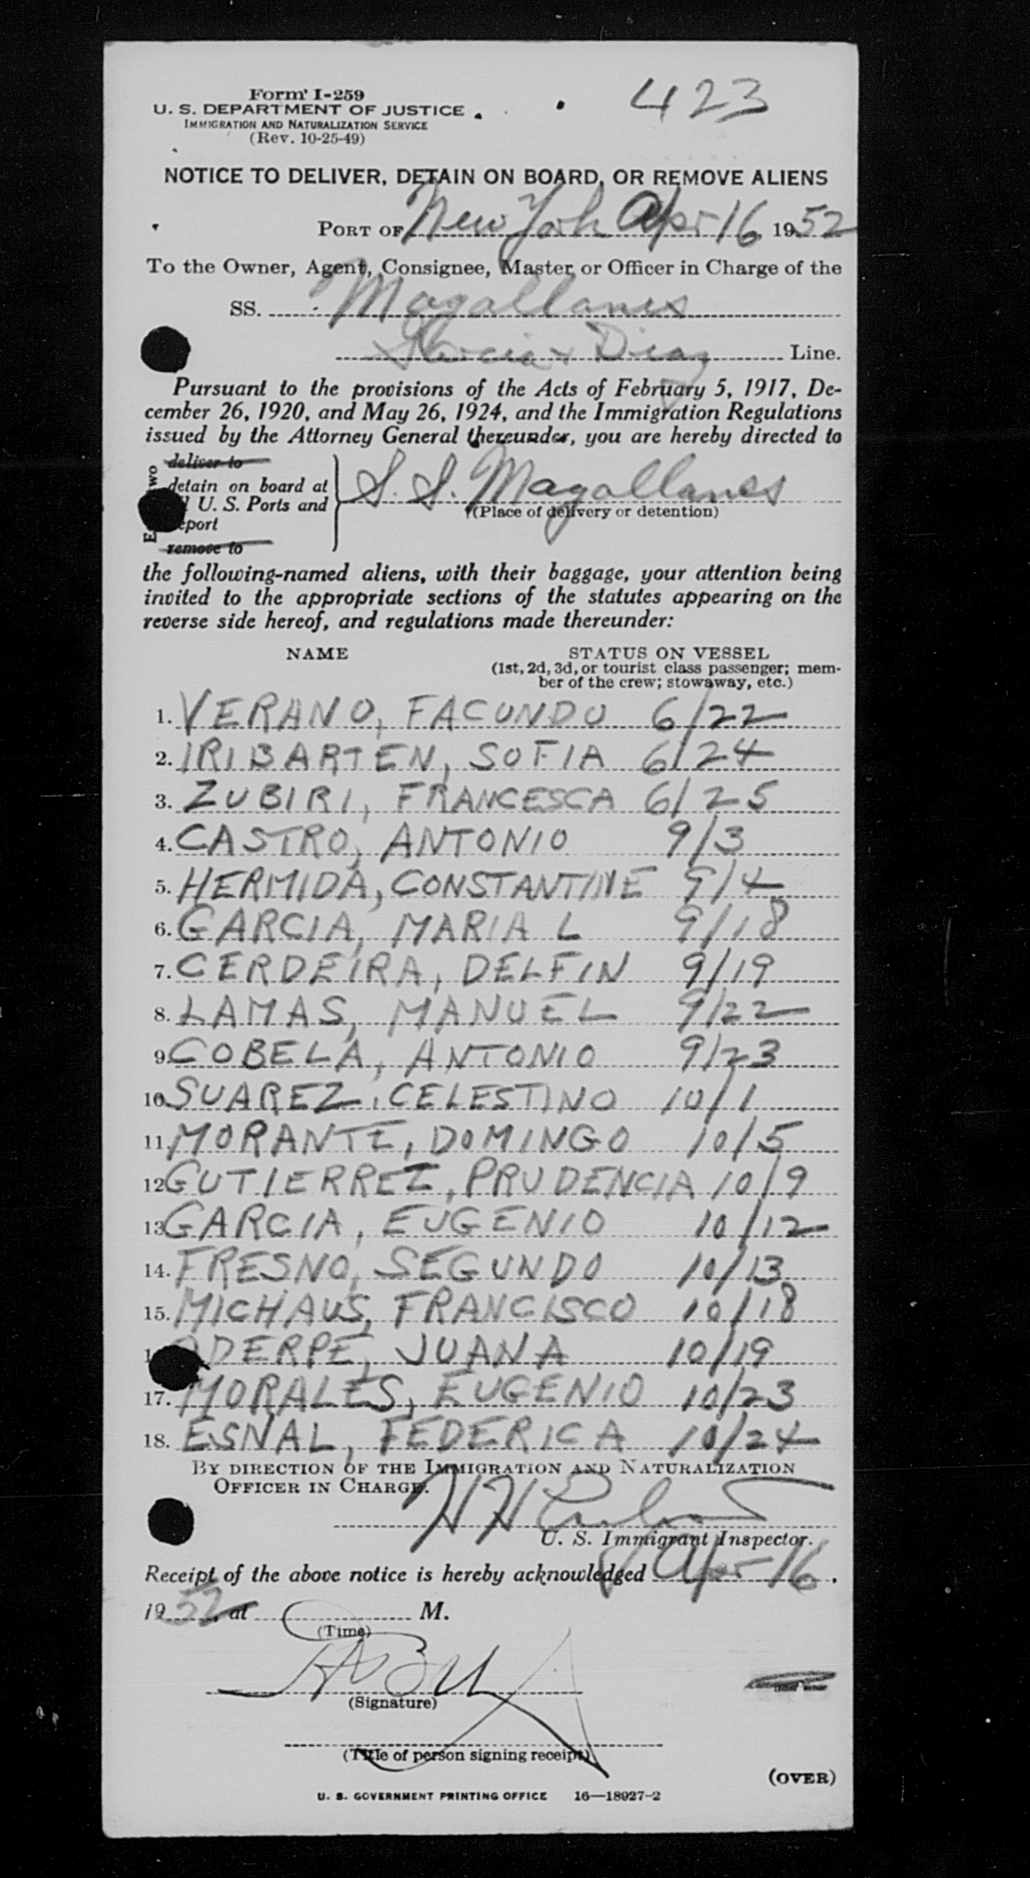 Form I-259
U. S. DEPARTMENT OF JUSTICE
IMMIGRATION AND NATURALIZATION SERVICE
(Rev. 10-25-49)
423
NOTICE TO DELIVER, DETAIN ON BOARD, OR REMOVE ALIENS
PORT OF New York Apr 16, 1952
To the Owner, Agent, Consignee, Master or Officer in Charge of the
SS. Magallanes
Garcia & Diaz Line.
Pursuant to the provisions of the Acts of February 5, 1917, De-
cember 26, 1920, and May 26, 1924, and the Immigration Regulations
issued by the Attorney General thereunder, you are hereby directed to
deliver to
detain on board at
U. S. Ports and
remove to
S. S. Magallanes
(Place of delivery or detention)
the following-named aliens, with their baggage, your attention being
invited to the appropriate sections of the statutes appearing on the
reverse side hereof, and regulations made thereunder:
NAME STATUS ON VESSEL
(1st, 2d, 3d, or tourist class passenger; mem-
ber of the crew; stowaway, etc.)
1. VERANO, FACUNDO 6/22
2. IRIBARTEN, SOFIA 6/24
3. ZUBIRI, FRANCESCA 6/25
4. CASTRO, ANTONIO 9/3
5. HERMIDA, CONSTANTINE 9/4
6. GARCIA, MARIA L 9/18
7. CERDEIRA, DELFIN 9/19
8. LAMAS, MANUEL 9/22
9. COBELA, ANTONIO 9/23
10. SUAREZ, CELESTINO 10/1
11. MORANTE, DOMINGO 10/5
12. GUTIERREZ, PRUDENCIA 10/9
13. GARCIA, EUGENIO 10/12
14. FRESNO, SEGUNDO 10/13
15. MICHAUS, FRANCISCO 10/18
JUANA 10/19
17. MORALES, EUGENIO 10/23
18. ESNAL, FEDERICA 10/24
BY DIRECTION OF THE IMMIGRATION AND NATURALIZATION
OFFICER IN CHARGE.
U. S. Immigrant Inspector.
Receipt of the above notice is hereby acknowledged Apr 16,
1952, at M.
(Time)
(Signature)
(Title of person signing receipt)
(OVER)
U. S. GOVERNMENT PRINTING OFFICE 16—18927-2